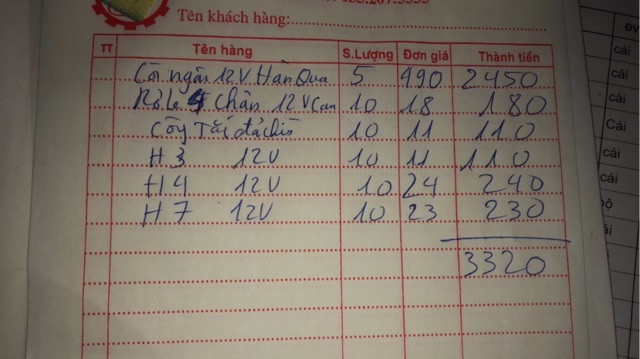 Tên khách hàng:
TT Tên hàng S.Lượng Đơn giá Thành tiền
Còi ngân 12V Hàn Qua 5 490 2450
Rơ le 4 chân 12V Can 10 18 180
Công Tắc 10 11 110
H3 12V 10 11 110
H4 12V 10 24 240
H7 12V 10 23 230
3320
cái
cái
cái
Cái
cái
cái
bộ
cái